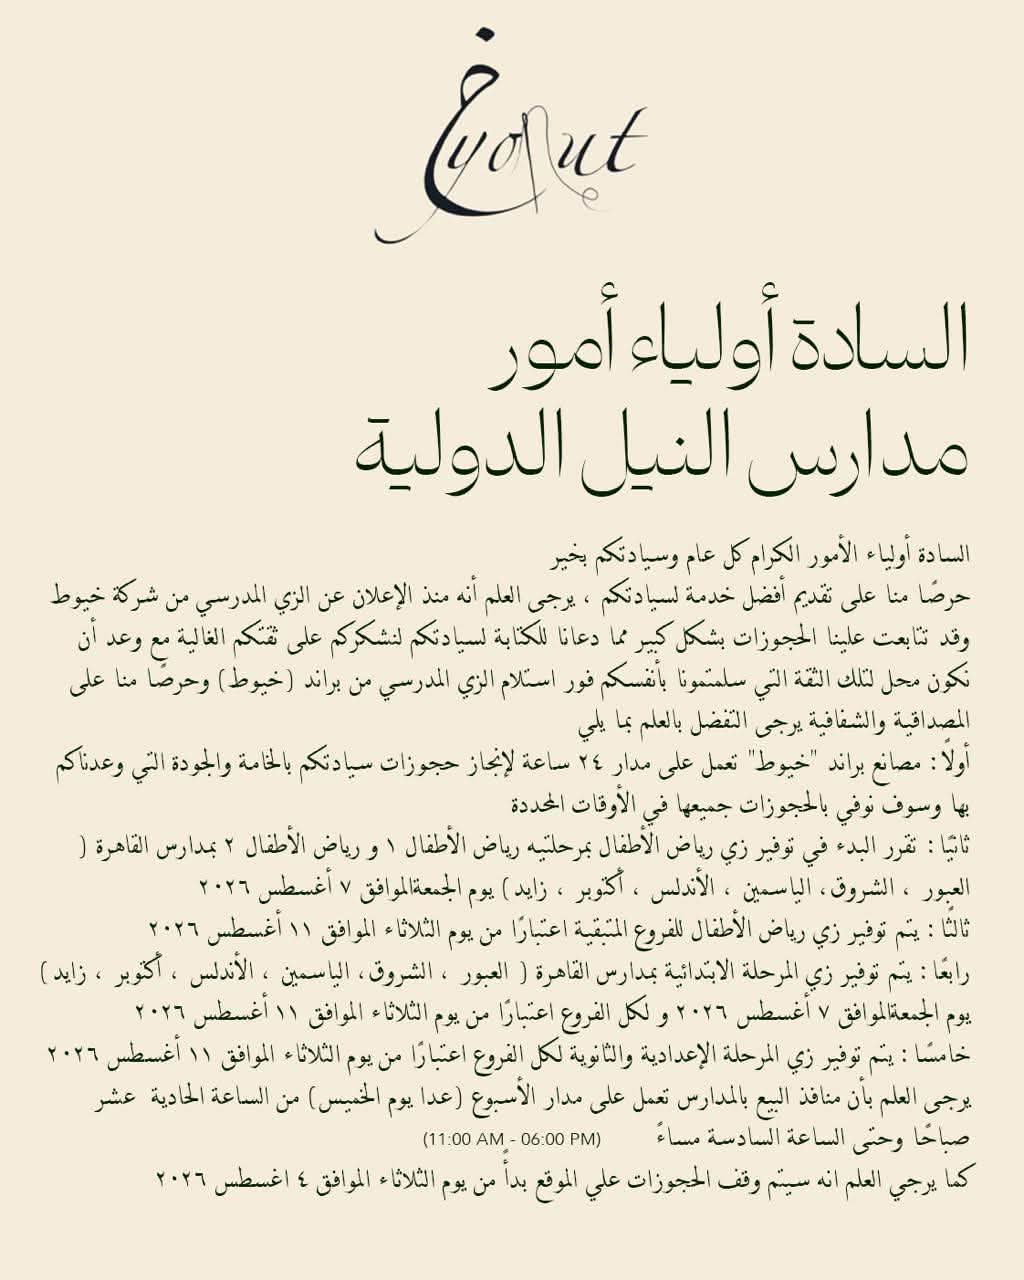 خyout
السادة أولياء أمور
مدارس النيل الدولية
السادة أولياء الأمور الكرام كل عام وسيادتكم بخير
حرصًا منا على تقديم أفضل خدمة لسيادتكم ، يرجى العلم أنه منذ الإعلان عن الزي المدرسي من شركة خيوط
وقد تتابعت علينا الحجوزات بشكل كبير مما دعانا للكتابة لسيادتكم لنشكركم على ثقتكم الغالية مع وعد أن
نكون محل لتلك الثقة التي سلمتمونا بأنفسكم فور استلام الزي المدرسي من براند (خيوط) وحرصًا منا على
المصداقية والشفافية يرجى التفضل بالعلم بما يلي
أولًا: مصانع براند "خيوط" تعمل على مدار ٢٤ ساعة لإنجاز حجوزات سيادتكم بالخامة والجودة التي وعدناكم
بها وسوف نوفي بالحجوزات جميعها في الأوقات المحددة
ثانيًا : تقرر البدء في توفير زي رياض الأطفال بمرحلتيه رياض الأطفال ١ و رياض الأطفال ٢ بمدارس القاهرة (
العبور ، الشروق، الياسمين ، الأندلس ، أكتوبر ، زايد) يوم الجمعةالموافق ٧ أغسطس ٢٠٢٦
ثالثًا : يتم توفير زي رياض الأطفال للفروع المتبقية اعتبارًا من يوم الثلاثاء الموافق ١١ أغسطس ٢٠٢٦
رابعًا : يتم توفير زي المرحلة الابتدائية بمدارس القاهرة ( العبور ، الشروق، الياسمين ، الأندلس ، أكتوبر ، زايد )
يوم الجمعةالموافق ٧ أغسطس ٢٠٢٦ و لكل الفروع اعتبارًا من يوم الثلاثاء الموافق ١١ أغسطس ٢٠٢٦
خامسًا : يتم توفير زي المرحلة الإعدادية والثانوية لكل الفروع اعتبارًا من يوم الثلاثاء الموافق ١١ أغسطس ٢٠٢٦
يرجى العلم بأن منافذ البيع بالمدارس تعمل على مدار الأسبوع (عدا يوم الخميس) من الساعة الحادية عشر
صباحًا وحتى الساعة السادسة مساءً (11:00 AM - 06:00 PM)
كما يرجي العلم انه سيتم وقف الحجوزات علي الموقع بدأً من يوم الثلاثاء الموافق ٤ اغسطس ٢٠٢٦